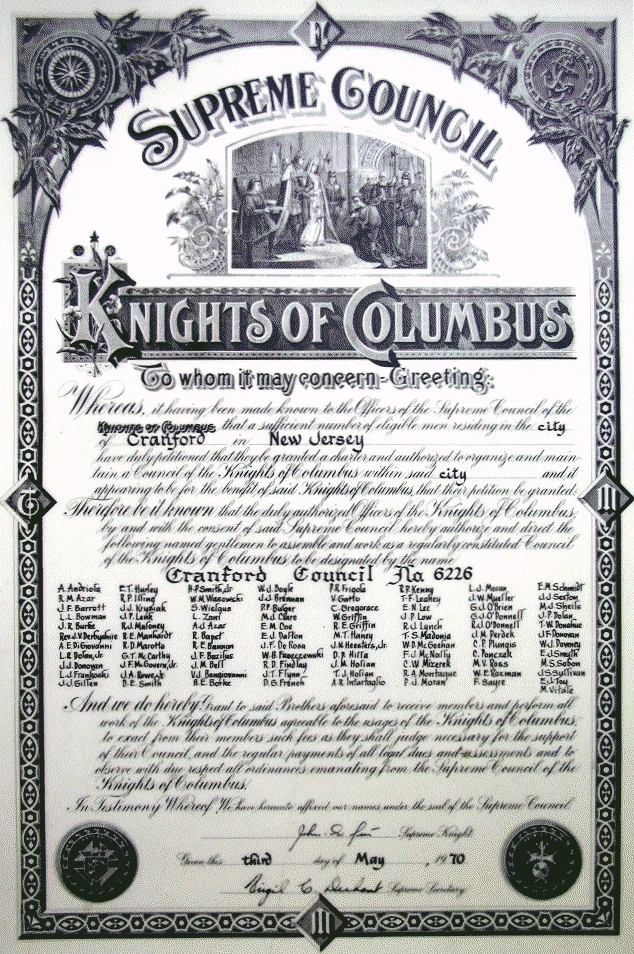 SUPREME COUNCIL
KNIGHTS OF COLUMBUS
To whom it may concern-Greeting:
Whereas, it having been made known to the Officers of the Supreme Council of the
Knights of Columbus that a sufficient number of eligible men residing in the city
of Cranford in New Jersey
have duly petitioned that they be granted a charter and authorized to organize and main-
tain a Council of the Knights of Columbus within said city and it
appearing to be for the benefit of said Knights of Columbus, that their petition be granted:
Therefore be it known that the duly authorized Officers of the Knights of Columbus,
by and with the consent of said Supreme Council hereby authorize and direct the
following named gentlemen to assemble and work as a regularly constituted Council
of the Knights of Columbus to be designated by the name
Cranford Council No 6226
A. Andriola E.T. Hurley H.F. Smith, Jr W.J. Doyle P.R. Frigola R.P. Kenny L.J. Moran E.M. Schmidt
R.M. Azar R.P. Illing W.M. Wasowicki J.J. Brennan V. Garto T.F. Leahey J.W. Mueller J.J. Sexton
J.F. Barrett J.J. Krysiak S. Wielgus P.P. Bulger C. Gregorace E.N. Lee G.J. O'Brien M.J. Sheils
L.L. Bowman J.P. Lenk L. Zani M.J. Clare W. Griffin J.P. Low G.J. O'Donnell J.P. Dolan
J.R. Burke R.J. Maloney A.J. Azar E.M. Coe R.E. Griffin R.J. Lynch R.J. O'Donnell T.W. Donohue
Rev. J.V. Derbyshire R.E. Manhardt R. Bapst E.J. Dalton M.T. Haney T.S. Madonia J.M. Perdek J.F. Donovan
A.E. DiGiovanni R.D. Marotta R.E. Bannon J.F. De Rosa J.N. Heesters, Jr. W.D. McGeehan C.P. Plungus W.J. Downey
L.R. Dolan, Jr G.T. McCarthy J.F. Bazilus W.B. Franczewski D.P. Hiffa F.C. McNally C. Ponczek E.J. Smyth
J.J. Donovan J.F. McGovern, Jr J.M. Bell R.D. Findlay J.M. Holian C.W. Mizerek M.V. Ross M.S. Sobon
L.J. Frankoski J.A. Rowe, Jr V.J. Bongiovanni J.T. Flynn T.J. Holian R.A. Montague W.E. Rozman J.S. Sullivan
J.J. Gillen D.E. Smith B.E. Botke D.G. French A.R. Infortuglio P.J. Moran F. Sayre E.J. Toy
M. Vitale
And we do hereby Grant to said Brothers aforesaid to receive members and perform all
work of the Knights of Columbus agreeable to the usages of the Knights of Columbus,
to exact from their members such fees as they shall judge necessary for the support
of their Council, and the regular payments of all legal dues and assessments and to
observe with due respect all ordinances emanating from the Supreme Council of the
Knights of Columbus.
In Testimony Whereof We have hereunto affixed our names, under the seal of the Supreme Council
Supreme Knight
Given this third day of May, 1970
Virgil C. Dechant Supreme Secretary